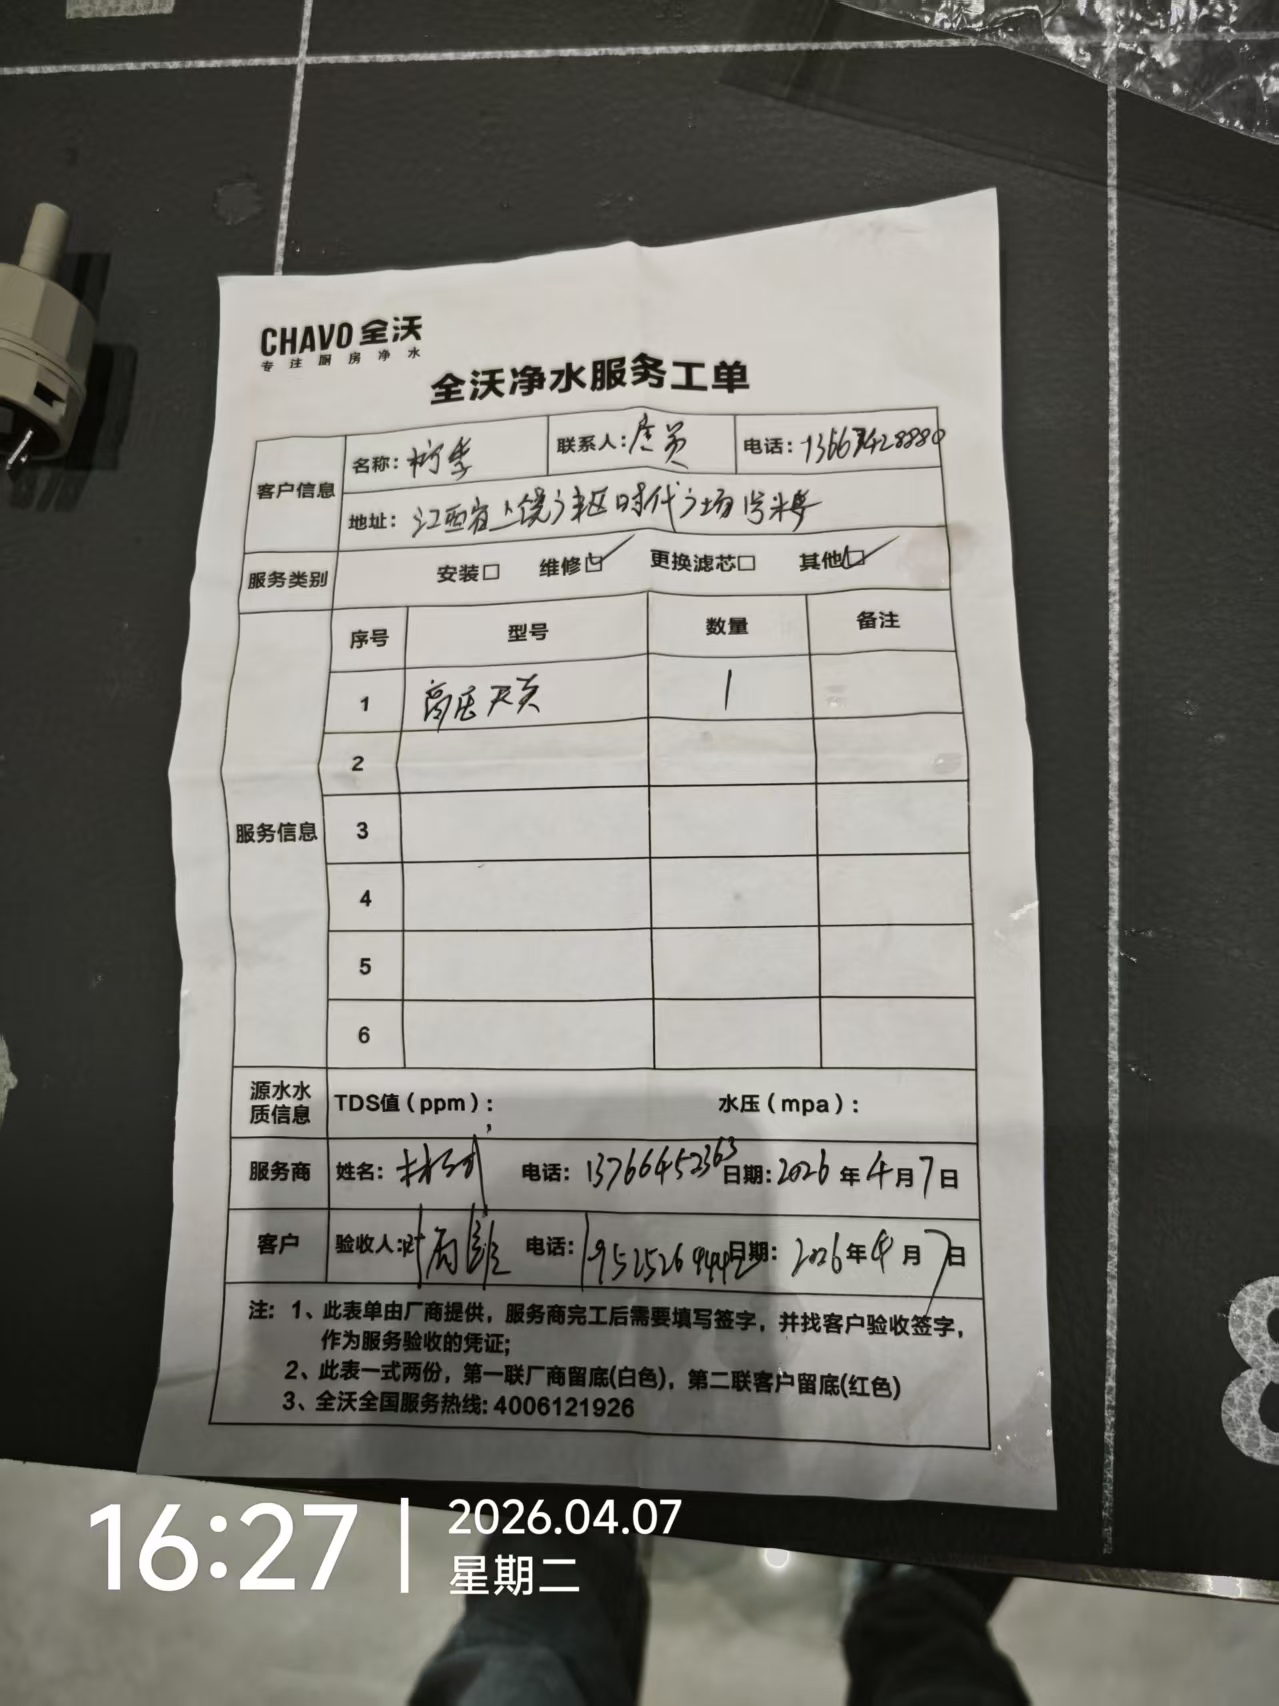 CHAVO 全沃
专注厨房净水
全沃净水服务工单
客户信息
名称:
联系人: 店员
电话:
地址: 江西省上饶广末区时代广场
服务类别
安装□ 维修□ 更换滤芯□ 其他□
序号 型号 数量 备注
服务信息
1 高压开关 1
2
3
4
5
6
源水水质信息
TDS值(ppm): 水压(mpa):
服务商 姓名: 电话: 13766452363 日期: 2026年4月7日
客户 验收人: 电话: 日期: 2026年4月7日
注: 1、此表单由厂商提供，服务商完工后需要填写签字，并找客户验收签字，
作为服务验收的凭证;
2、此表一式两份，第一联厂商留底(白色)，第二联客户留底(红色)
3、全沃全国服务热线: 4006121926
16:27
2026.04.07
星期二
8